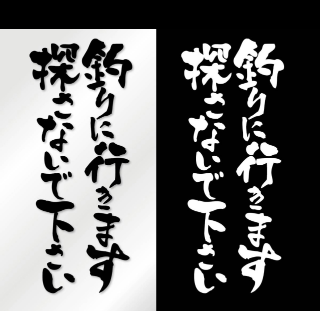 釣りに行きます
探さないで下さい
釣りに行きます
探さないで下さい